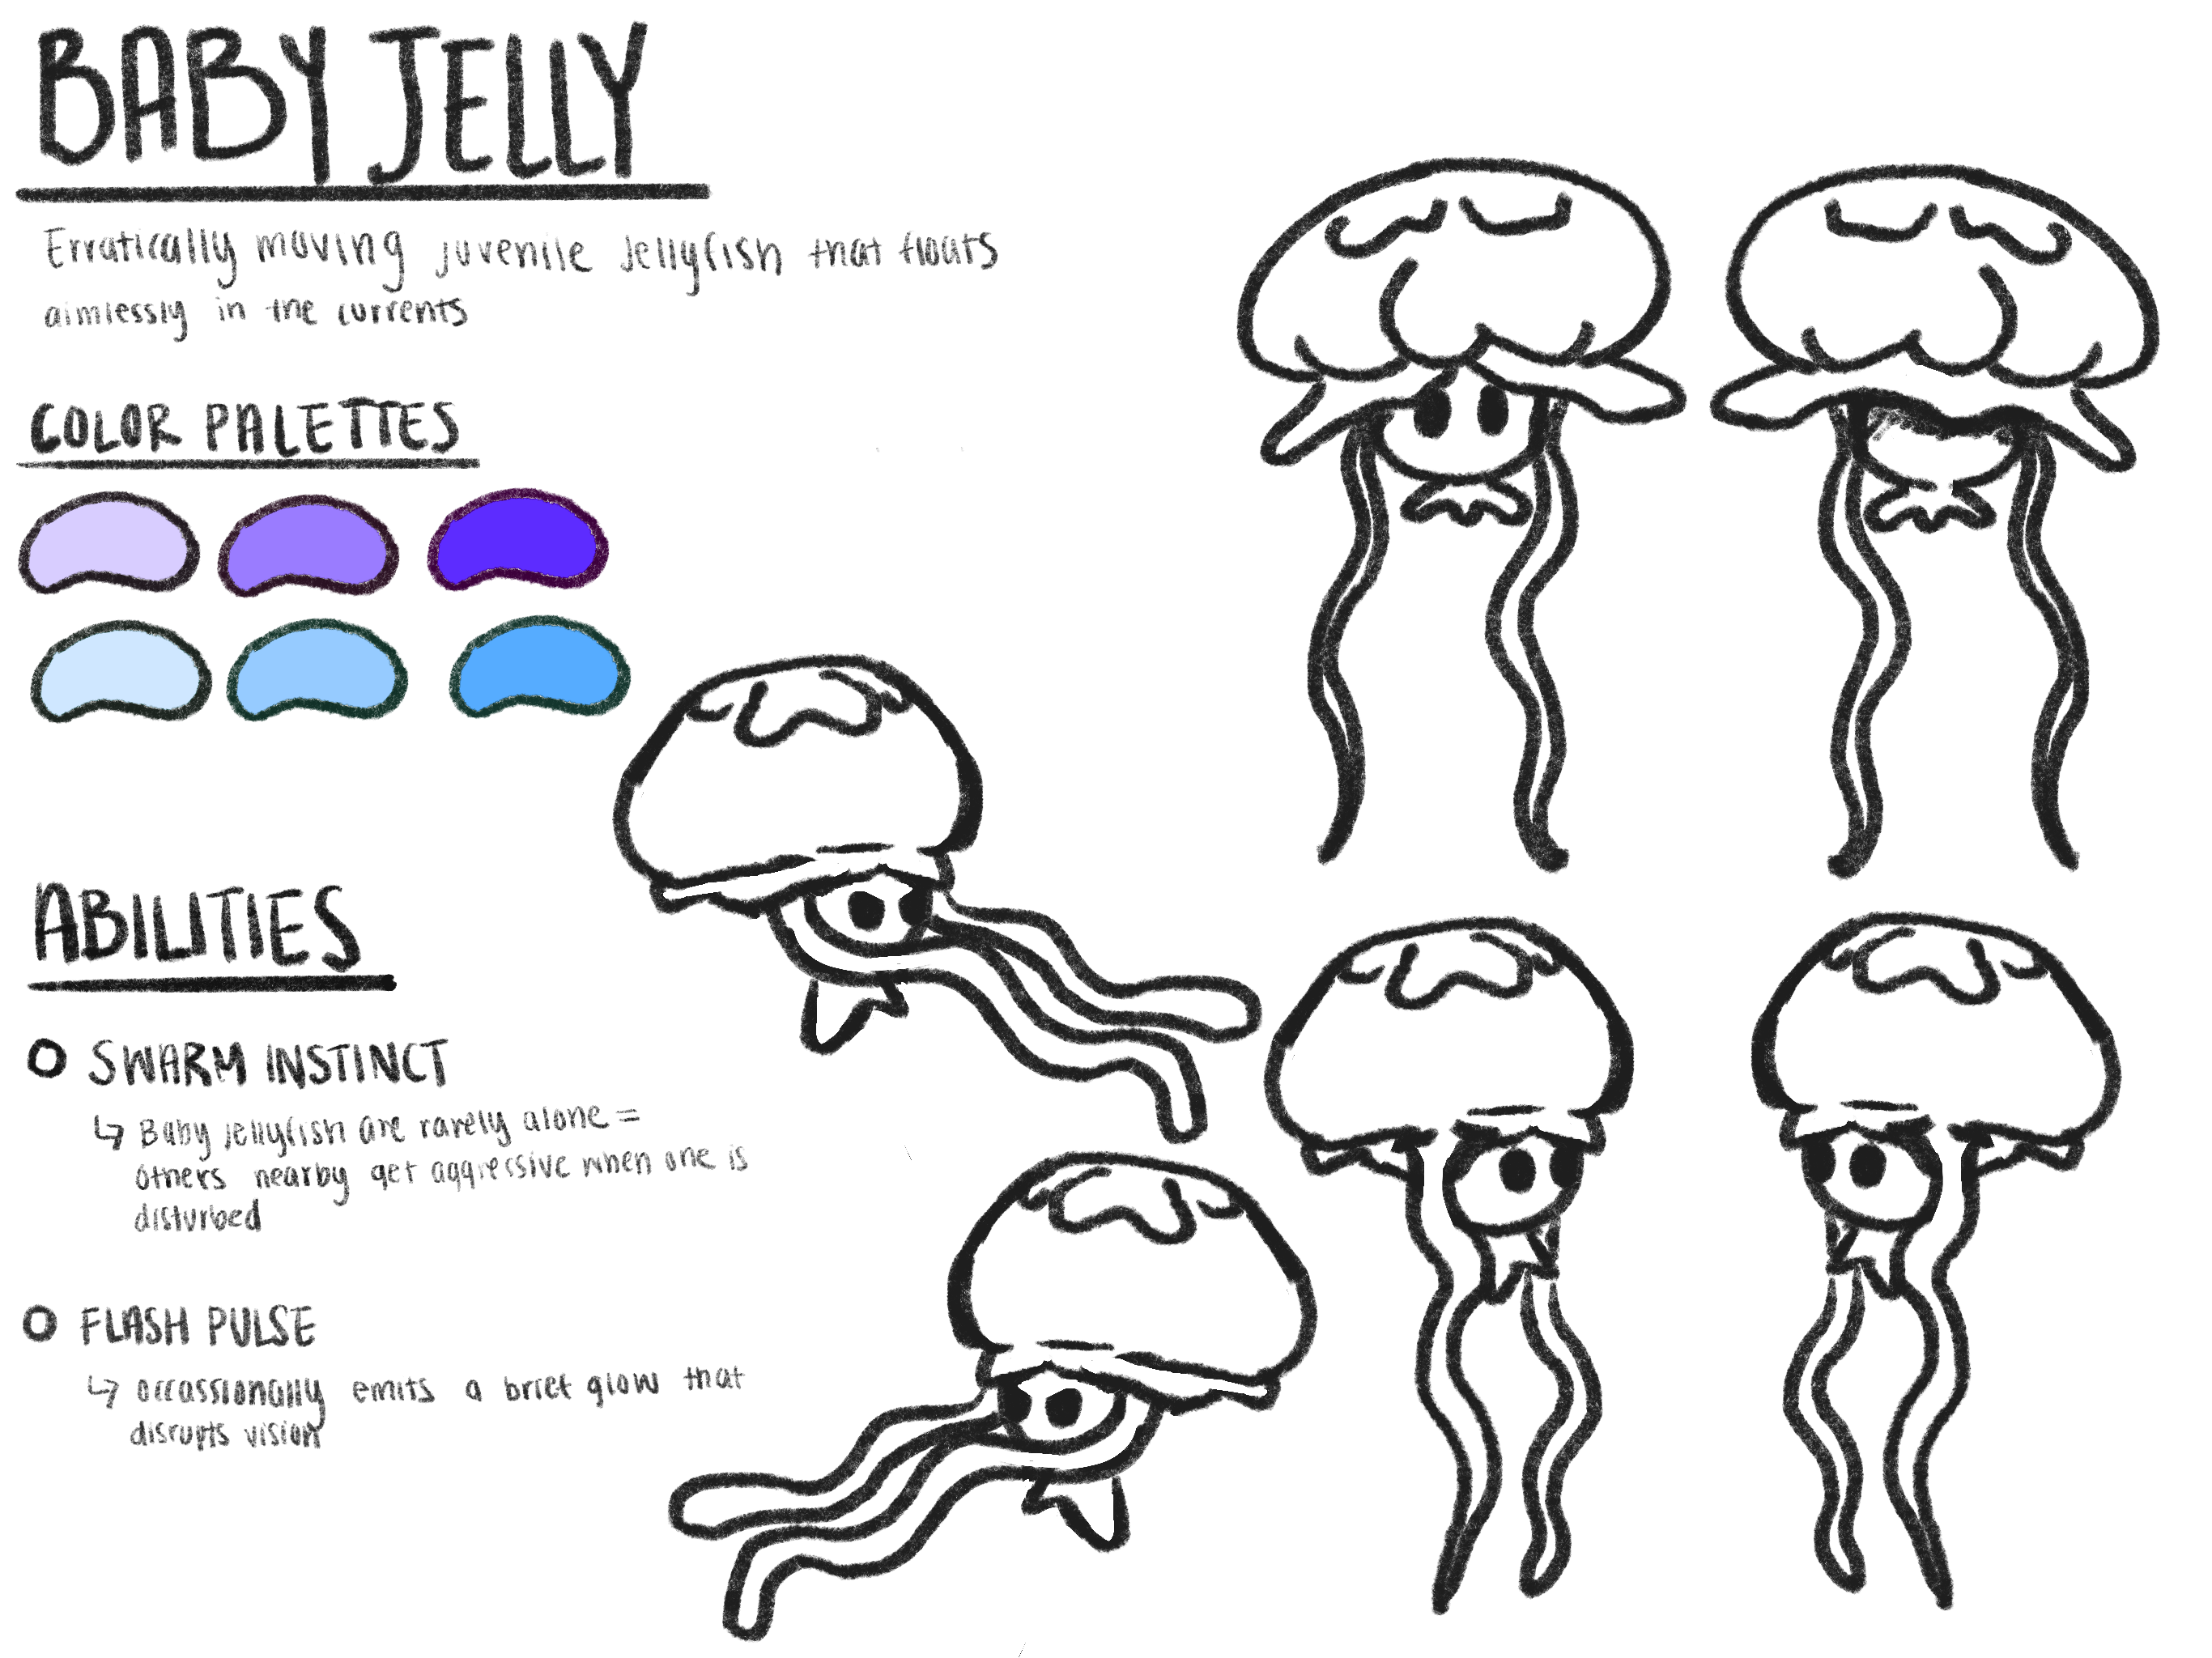 BABY JELLY
Erratically moving juvenile jellyfish that floats
aimlessly in the currents
COLOR PALETTES
ABILITIES
O SWARM INSTINCT
↳ Baby jellyfish are rarely alone =
others nearby get aggressive when one is
disturbed
O FLASH PULSE
↳ occassionally emits a brief glow that
disrupts vision